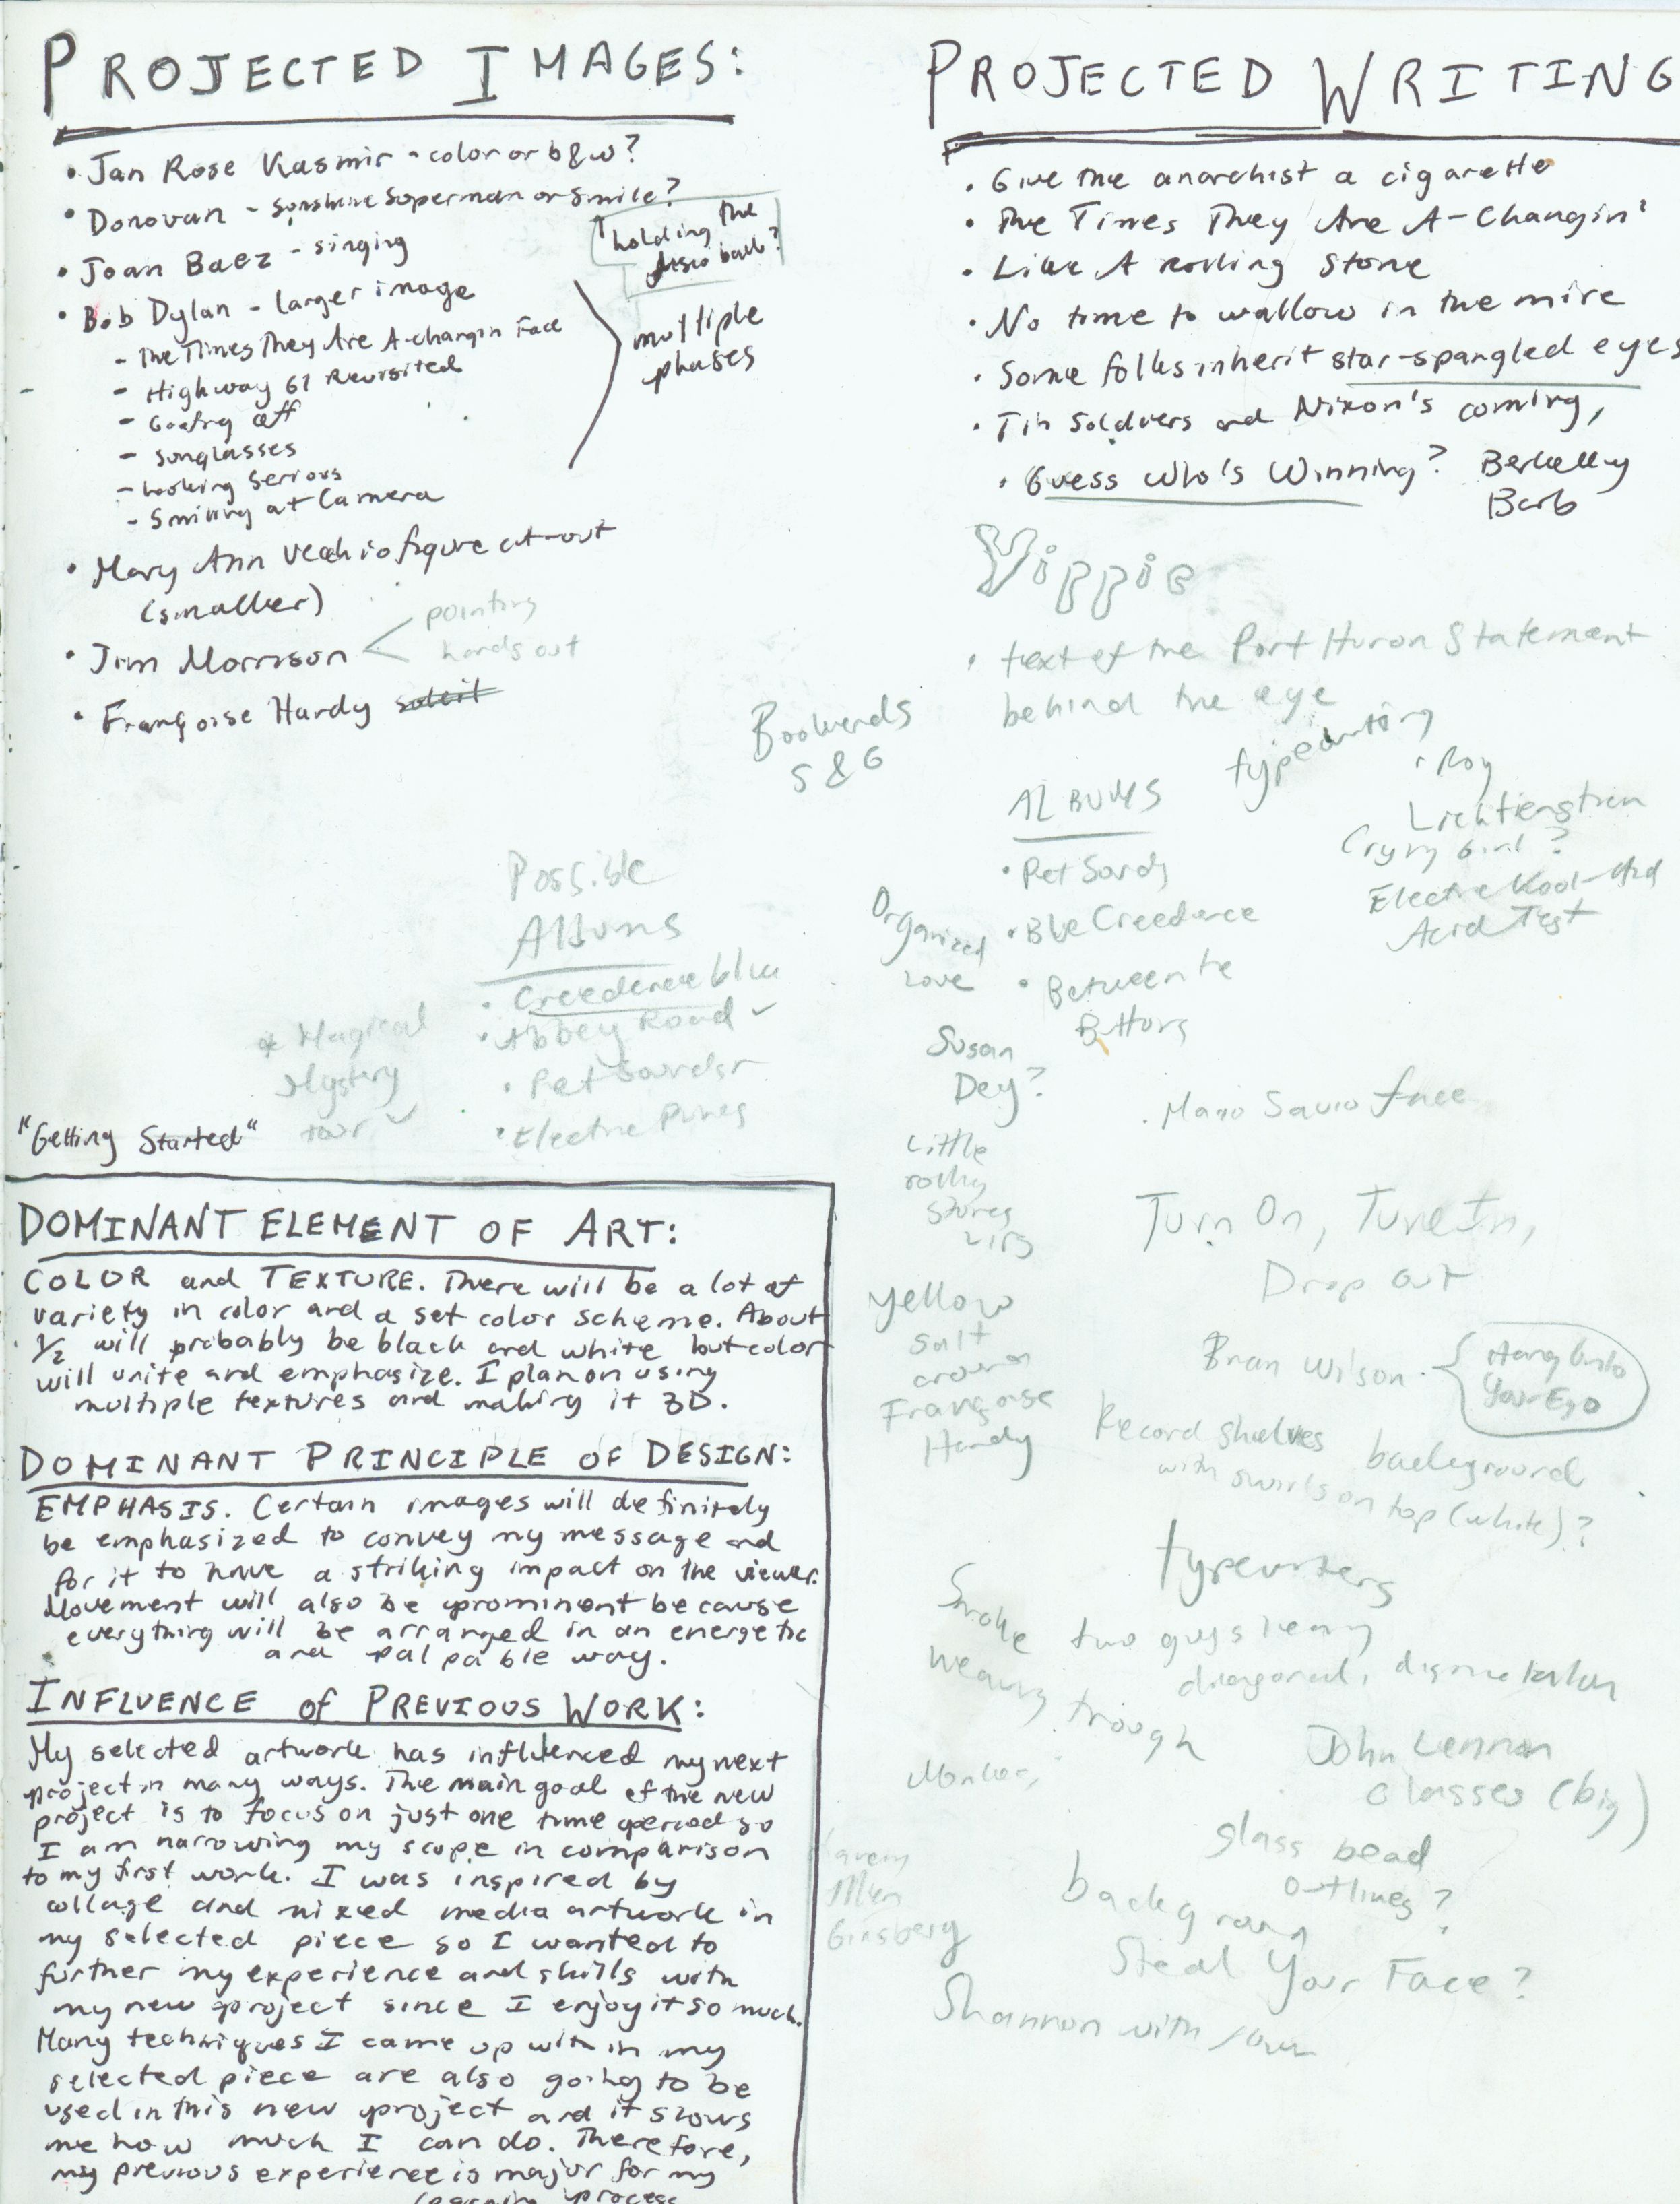 PROJECTED IMAGES:
• Jan Rose Kasmir - color or b&w?
• Donovan - sunshine superman or smile?
holding the
disco ball?
• Joan Baez - singing
• Bob Dylan - larger image
- The Times They Are A-changin Face
- Highway 61 Revisited
- Goofing off
- sunglasses
- looking serious
- smiling at camera
multiple
phases
• Mary Ann Vecchio figure cut-out
(smaller)
• Jim Morrison
pointing
hands out
• Françoise Hardy soleil
Possible
Albums
• Creedence blue
• Abbey Road ✓
• Pet Sounds
• Electric Prunes
* Magical
Mystery
tour ✓
"Getting Started"
DOMINANT ELEMENT OF ART:
COLOR and TEXTURE. There will be a lot of
variety in color and a set color scheme. About
1/2 will probably be black and white but color
will unite and emphasize. I plan on using
multiple textures and making it 3D.
DOMINANT PRINCIPLE OF DESIGN:
EMPHASIS. Certain images will definitely
be emphasized to convey my message and
for it to have a striking impact on the viewer.
Movement will also be prominent because
everything will be arranged in an energetic
and palpable way.
INFLUENCE of PREVIOUS WORK:
My selected artwork has influenced my next
project in many ways. The main goal of the new
project is to focus on just one time period so
I am narrowing my scope in comparison
to my first work. I was inspired by
collage and mixed media artwork in
my selected piece so I wanted to
further my experience and skills with
my new project since I enjoy it so much.
Many techniques I came up with in my
selected piece are also going to be
used in this new project and it shows
me how much I can do. Therefore,
my previous experience is major for my
learning process
PROJECTED WRITING
• Give the anarchist a cigarette
• The Times They Are A-Changin'
• Like A rolling Stone
• No time to wallow in the mire
• Some folks inherit star-spangled eyes
• Tin soldiers and Nixon's coming,
• Guess Who's Winning? Berkelley
Barb
Yippie
• text of the Port Huron Statement
behind the eye
Bookends
S & G
typewriting
• Roy
Lichtienstien
Crying Girl?
Electric Kool-Aid
Acid Test
ALBUMS
• Pet Sounds
• Blue Creedence
• Between the
Buttons
Organized
Love
Susan
Dey?
• Mario Savio face
Little
rolling
stones
lips
Turn On, Tune In,
Drop Out
Yellow
salt
around
Françoise
Hardy
Brian Wilson
Hang Onto
Your Ego
Record shelves background
with swirls on top (white)?
typewriters
Smoke
weaving through
two guys
diagonal,
John Lennon
Glasses (big)
Monkees
glass bead
outlines?
Allen
Ginsberg
background
Steal Your Face?
Shannon with